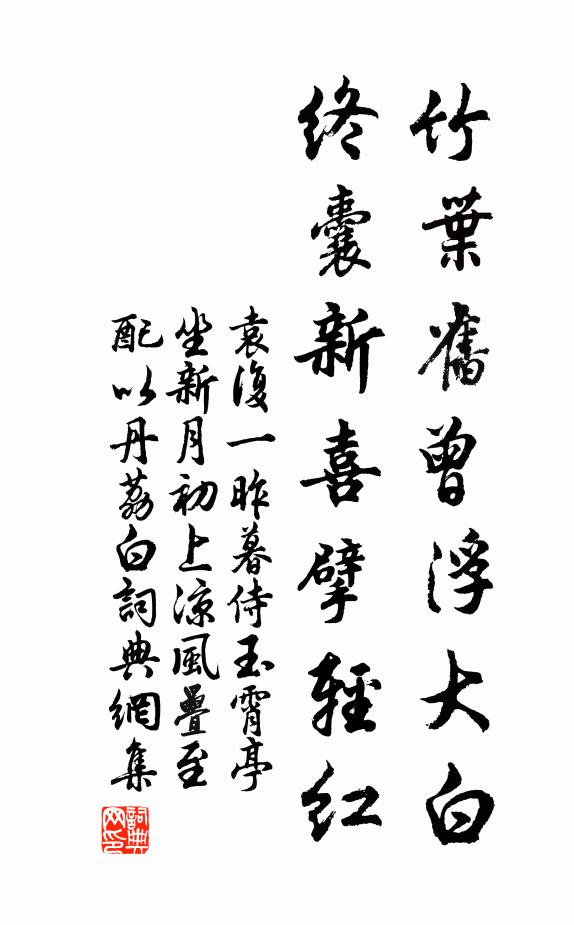 竹葉舊曾浮大白
終囊新喜擘輕紅
袁復一昨暮侍玉霄亭
坐新月初上涼風疊至
配以丹荔白詞典網集
詞典
网印